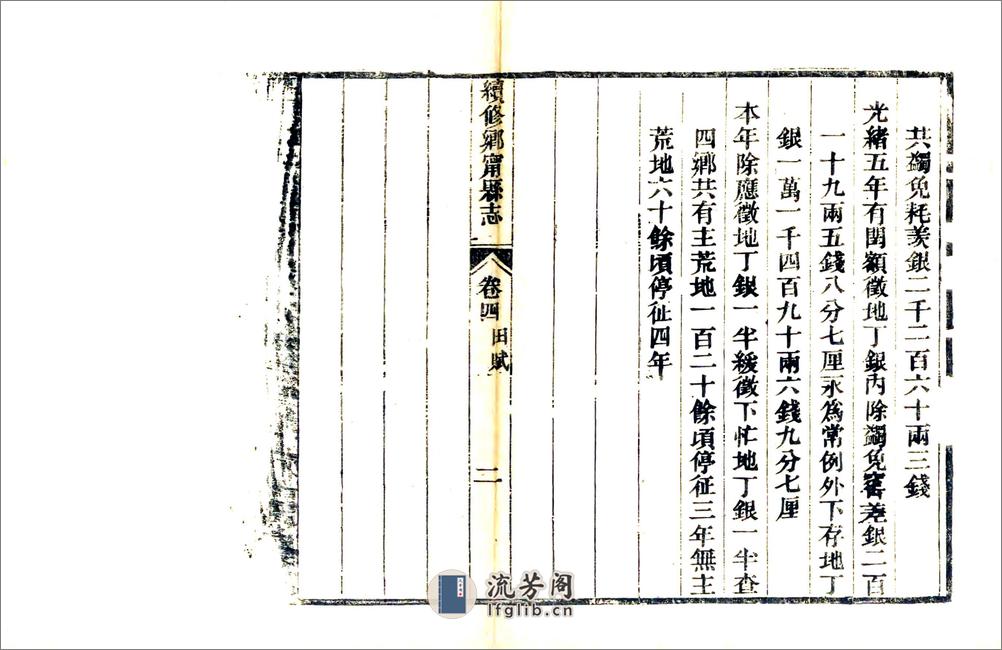 共蠲免耗羡銀二千二百六十兩三錢
光緒五年有閏額徵地丁銀內除蠲免窰羌銀二百
一十九兩五錢八分七厘永爲常例外下存地丁
銀一萬一千四百九十兩六錢九分七厘
本年除應徵地丁銀一半緩徵下忙地丁銀一半查
四鄉共有主荒地一百二十餘頃停征三年無主
荒地六十餘頃停征四年
續修鄉甯縣志
卷四 田賦
二
流芳阁
lfglib.cn